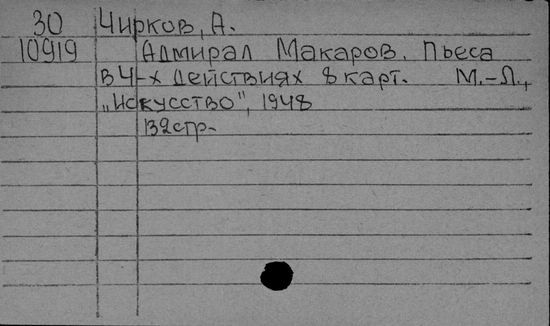 30 Чирков, А.
10919 Адмирал Макаров. Пьеса
в 4-х действиях 8 карт. М.-Л.,
„Искусство", 1948
132стр.